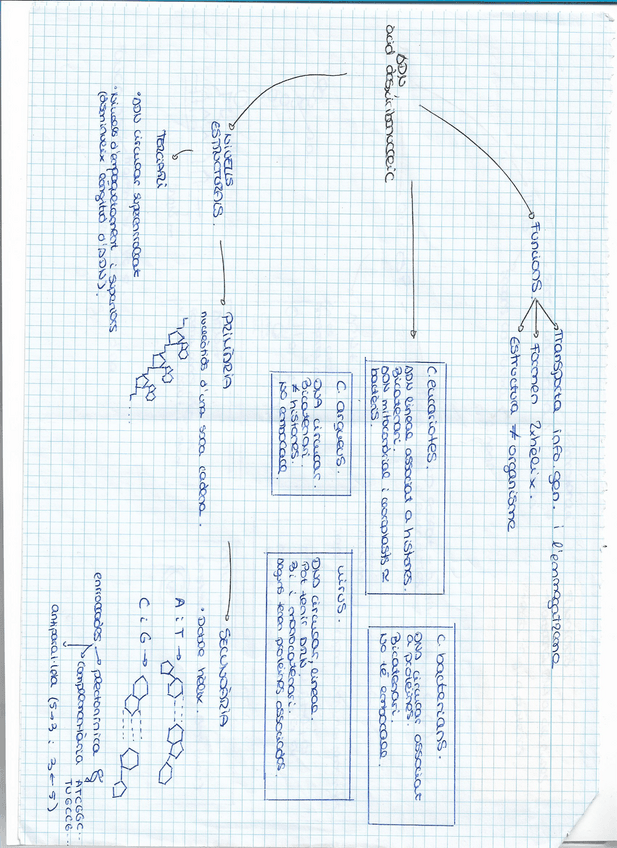 DDN
àcid desoxiribonucleic
Funcions.
Transporta info gen. i l'emmagatzema
Formen 2hèlix.
Estructura ≠ organisme
C. eucariotes.
DDN lineal associat a histones.
Bicatenari.
DDN mitocondrial i cloroplasts ≈
bacteris.
C. bacterians.
DNA circular associat
a proteïnes.
Bicatenari.
No té embolcall.
C. arqueus.
DNA circular.
Bicatenari.
≠ histones.
No embolcall.
virus.
DNA circular, lineal.
Pot tenir
Bi i monocatenari.
Alguns tenen proteïnes associades.
NIVELLS
ESTRUCTURALS.
PRIMÀRIA
nucleòtids d'una sola cadena.
SECUNDÀRIA
• Doble hèlix.
A i T →
C i G →
enrotllades → plectonímica
complementària ATCGGC..
antiparal·lela (5→3 i 3←5)
TERCIARI
• DDN circular superenrotllat
• Nivells d'empaquetament i superiors
(disminueix longitud d'DDN).